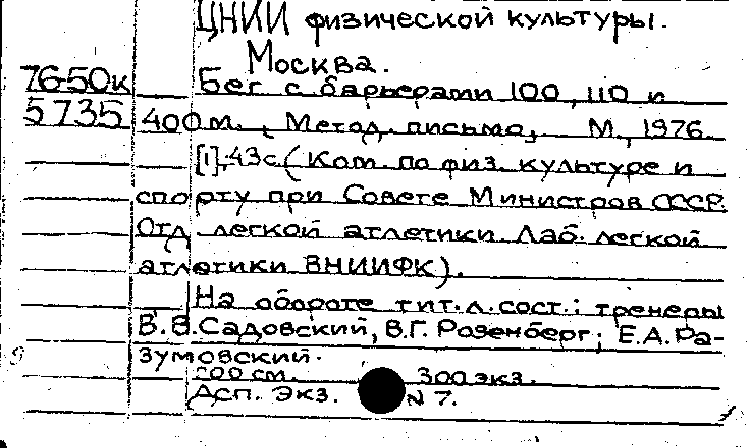 ЦНИИ физической культуры.
Москва.
76-50к Бег с барьерами 100, 110 и
5735 400 м., Метод. письмо, М., 1976.
[1], 43с (Ком. по физ. культуре и
спорту при Совете Министров СССР.
Отд легкой атлетики. Лаб. легкой
атлетики ВНИИФК).
На обороте тит. л. сост.: тренеры
В.В. Садовский, В.Г. Розенберг; Е.А. Ра-
зумовский.
см. 300 экз.
Дсп. Экз. N 7.